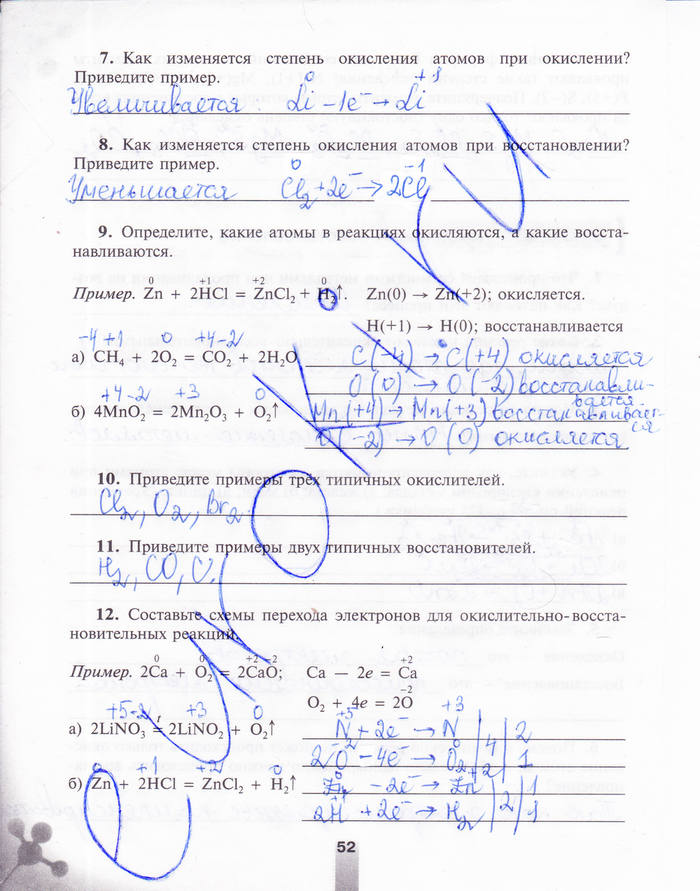 7. Как изменяется степень окисления атомов при окислении?
Приведите пример.
Увеличивается. Li⁰ – 1e⁻ → Li⁺¹
8. Как изменяется степень окисления атомов при восстановлении?
Приведите пример.
Уменьшается Cl₂⁰ + 2e⁻ → 2Cl⁻¹
9. Определите, какие атомы в реакциях окисляются, а какие восста-
навливаются.
0 +1 +2 0
Пример. Zn + 2HCl = ZnCl₂ + H₂↑. Zn(0) → Zn(+2); окисляется.
H(+1) → H(0); восстанавливается
-4 +1 0 +4 -2
а) CH₄ + 2O₂ = CO₂ + 2H₂O C(-4) → C(+4) окисляется
O(0) → O(-2) восстанавли-
вается.
+4 -2 +3 0
б) 4MnO₂ = 2Mn₂O₃ + O₂↑ Mn(+4) → Mn(+3) восстанавливает-
ся
O(-2) → O(0) окисляется
10. Приведите примеры трёх типичных окислителей.
Cl₂, O₂, Br₂
11. Приведите примеры двух типичных восстановителей.
H₂, CO, C.
12. Составьте схемы перехода электронов для окислительно-восста-
новительных реакций.
0 0 +2 -2 +2
Пример. 2Ca + O₂ = 2CaO; Ca − 2e = Ca
-2
O₂ + 4e = 2O
+5 -2 +3 0 +5 +3
а) 2LiNO₃ =ᵗ 2LiNO₂ + O₂↑ N + 2e⁻ → N | 4 | 2
2O⁻² – 4e⁻ → O₂⁰ | 2 | 1
0 +1 +2 0
б) Zn + 2HCl = ZnCl₂ + H₂↑ Zn⁰ – 2e⁻ → Zn⁺² | 2 | 1
2H + 2e⁻ → H₂⁰ | 2 | 1
52